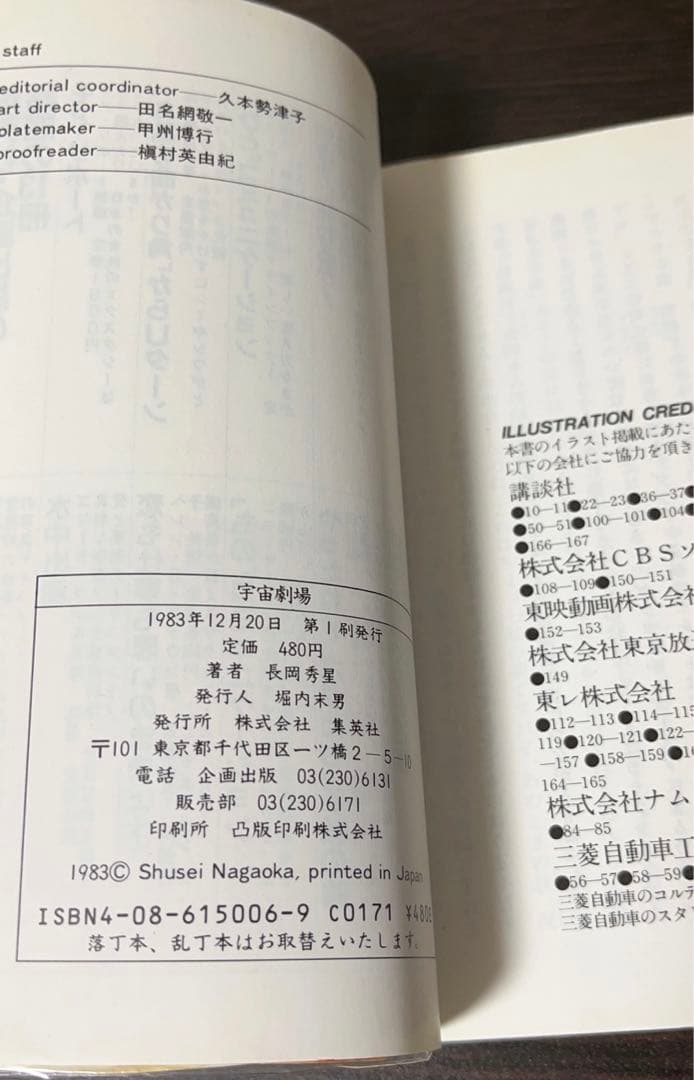 staff
editorial coordinator——久本勢津子
art director——田名網敬一
platemaker——甲州博行
proofreader——槇村英由紀
宇宙劇場
1983年12月20日 第1刷発行
定価 480円
著者 長岡秀星
発行人 堀内末男
発行所 株式会社 集英社
〒101 東京都千代田区一ツ橋2−5−10
電話 企画出版 03(230)6131
販売部 03(230)6171
印刷所 凸版印刷株式会社
1983© Shusei Nagaoka, printed in Japan
ISBN4-08-615006-9 C0171 ¥480E
落丁本、乱丁本はお取替えいたします。
ILLUSTRATION CRED
本書のイラスト掲載にあた
以下の会社にご協力を頂き
講談社
●10—11●22—23●36—37●
●50—51●100—101●104●
●166—167
株式会社CBSソ
●108—109●150—151
東映動画株式会社
●152—153
株式会社東京放送
●149
東レ株式会社
●112—113●114—115
119●120—121●122—
—157●158—159●16
164—165
株式会社ナム
●84—85
三菱自動車工
●56—57●58—59●
三菱自動車のコルデ
三菱自動車のスタ